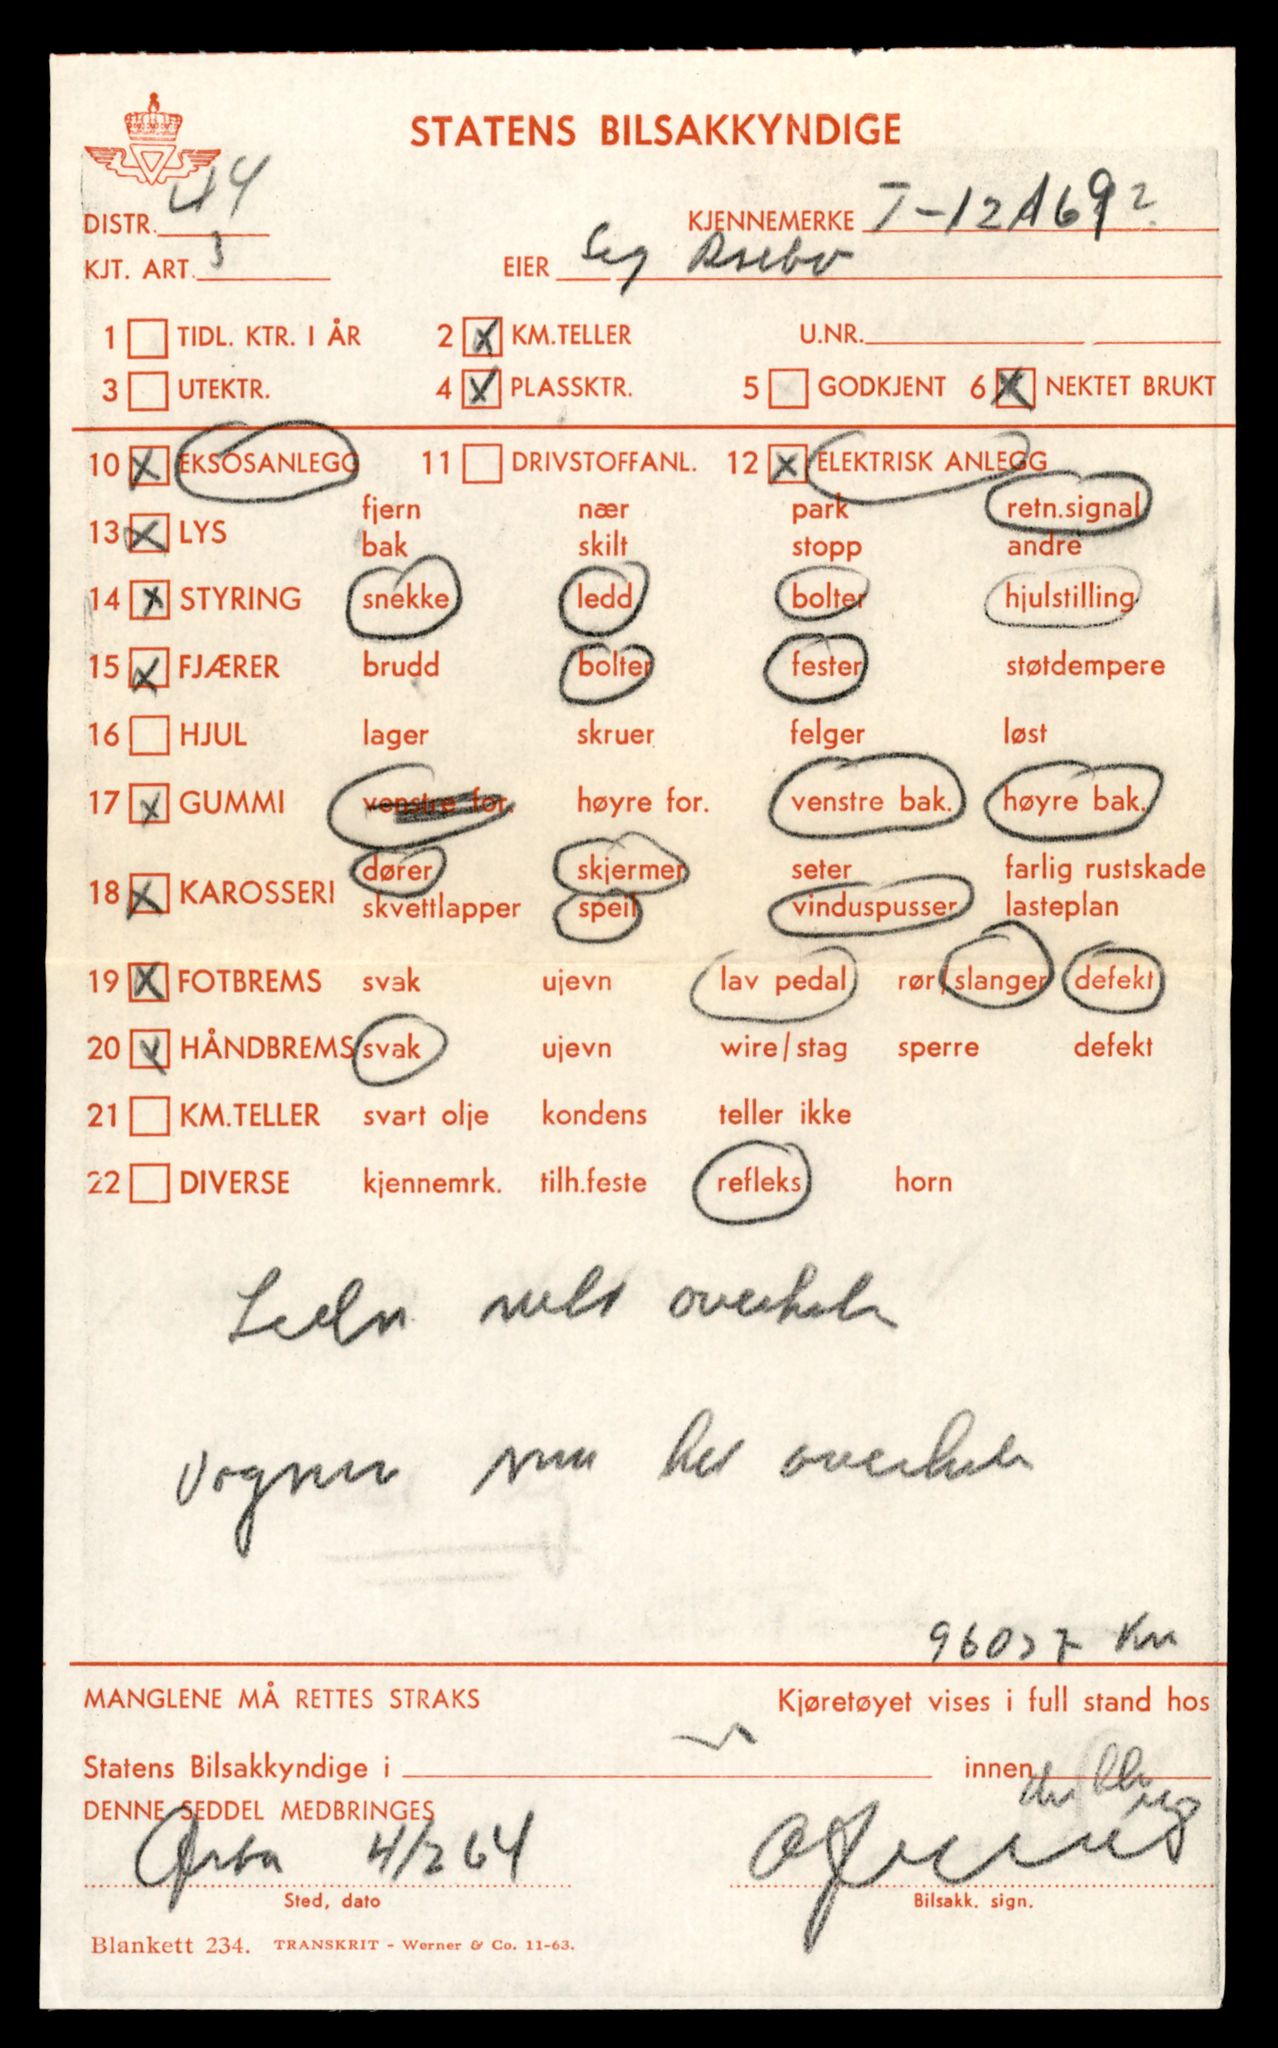 STATENS BILSAKKYNDIGE
DISTR. 44 KJENNEMERKE T-12169
KJT. ART. 3 EIER
1 TIDL. KTR. I ÅR 2 X KM.TELLER U.NR.
3 UTEKTR. 4 X PLASSKTR. 5 GODKJENT 6 X NEKTET BRUKT
10 X EKSOSANLEGG 11 DRIVSTOFFANL. 12 X ELEKTRISK ANLEGG
13 X LYS fjern nær park retn.signal
bak skilt stopp andre
14 X STYRING snekke ledd bolter hjulstilling
15 X FJÆRER brudd bolter fester støtdempere
16 HJUL lager skruer felger løst
17 X GUMMI venstre for. høyre for. venstre bak. høyre bak.
18 X KAROSSERI dører skjermer seter farlig rustskade
skvettlapper speil vinduspusser lasteplan
19 X FOTBREMS svak ujevn lav pedal rør/slanger defekt
20 X HÅNDBREMS svak ujevn wire/stag sperre defekt
21 KM.TELLER svart olje kondens teller ikke
22 DIVERSE kjennemrk. tilh.feste refleks horn
overhales
Vognen må overhales
Km
MANGLENE MÅ RETTES STRAKS Kjøretøyet vises i full stand hos
Statens Bilsakkyndige i innen
DENNE SEDDEL MEDBRINGES
Ørsta 4/2 64
Sted, dato Bilsakk. sign.
Blankett 234. TRANSKRIT - Werner & Co. 11-63.